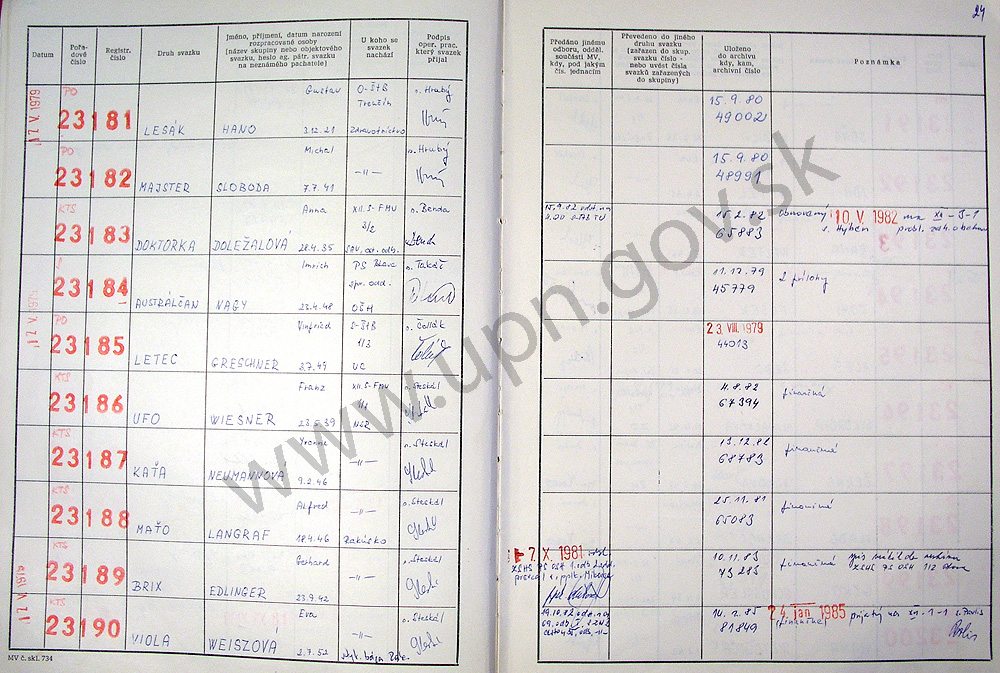 24
Datum
Pořadové číslo
Registr. číslo
Druh svazku
Jméno, příjmení, datum narození
rozpracované osoby
(název skupiny nebo objektového
svazku, heslo ag. pátr. svazku
na neznámého pachatele)
U koho se
svazek
nachází
Podpis
oper. prac.
který svazek
přijal
Předáno jinému
odboru, odděl.
součásti MV,
kdy, pod jakým
čís. jednacím
Převedeno do jiného
druhu svazku
(zařazen do skup.
svazku číslo -
nebo uvést čísla
svazků zařazených
do skupiny)
Uloženo
do archivu
kdy, kam,
archivní číslo
Poznámka
12 V. 1979
PO
23181
LESÁK HANO Gustav 3.12.21
O-ŠtB
Trenčín
Zdravotníctvo
n. Hrubý
15.9.80
49002
PO
23182
MAJSTER SLOBODA Michal 7.7.41
-"-
n. Hrubý
15.9.80
48991
KTS
23183
DOKTORKA DOLEŽALOVÁ Anna 28.4.35
XII.S-FMV
3/2
n. Benda
15.2.82
65883
10. V. 1982
23184
AUSTRÁLČAN NAGY Imrich 22.4.48
OŠM
n. Takáč
11.12.79
45779
2 prílohy
12 V. 1979
PO
23185
LETEC GRESCHNER Vinfried 3.7.49
S-ŠtB
1/3
VC
23. VIII. 1979
44013
KTS
23186
UFO WIESNER Franz 23.5.39
XII.S-FMV
n. Steskál
4.8.82
67394
finančná
KTS
23187
KAŤA NEUMANNOVÁ Yvonne 9.2.46
-"-
n. Steskál
13.12.82
68783
finančná
KTS
23188
MAŤO LANGRAF Alfred 18.4.46
-"-
Rakúsko
n. Steskál
25.11.81
65083
finančná
KTS
23189
BRIX EDLINGER Gerhard 23.9.42
-"-
n. Steskál
7. X. 1981
10.11.83
73215
finančná
12 V. 1979
KTS
23190
VIOLA WEISZOVÁ Eva 2.7.52
-"-
n. Steskál
14.2.85
81849
24. Jan 1985
(finančné)
MV č. skl. 734
www.upn.gov.sk